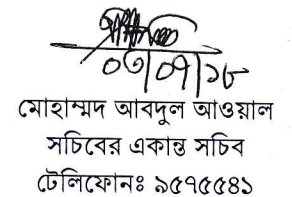 ০৩|০৭|১৮
মোহাম্মদ আবদুল আওয়াল
সচিবের একান্ত সচিব
টেলিফোনঃ ৯৫৭৫৫৪১